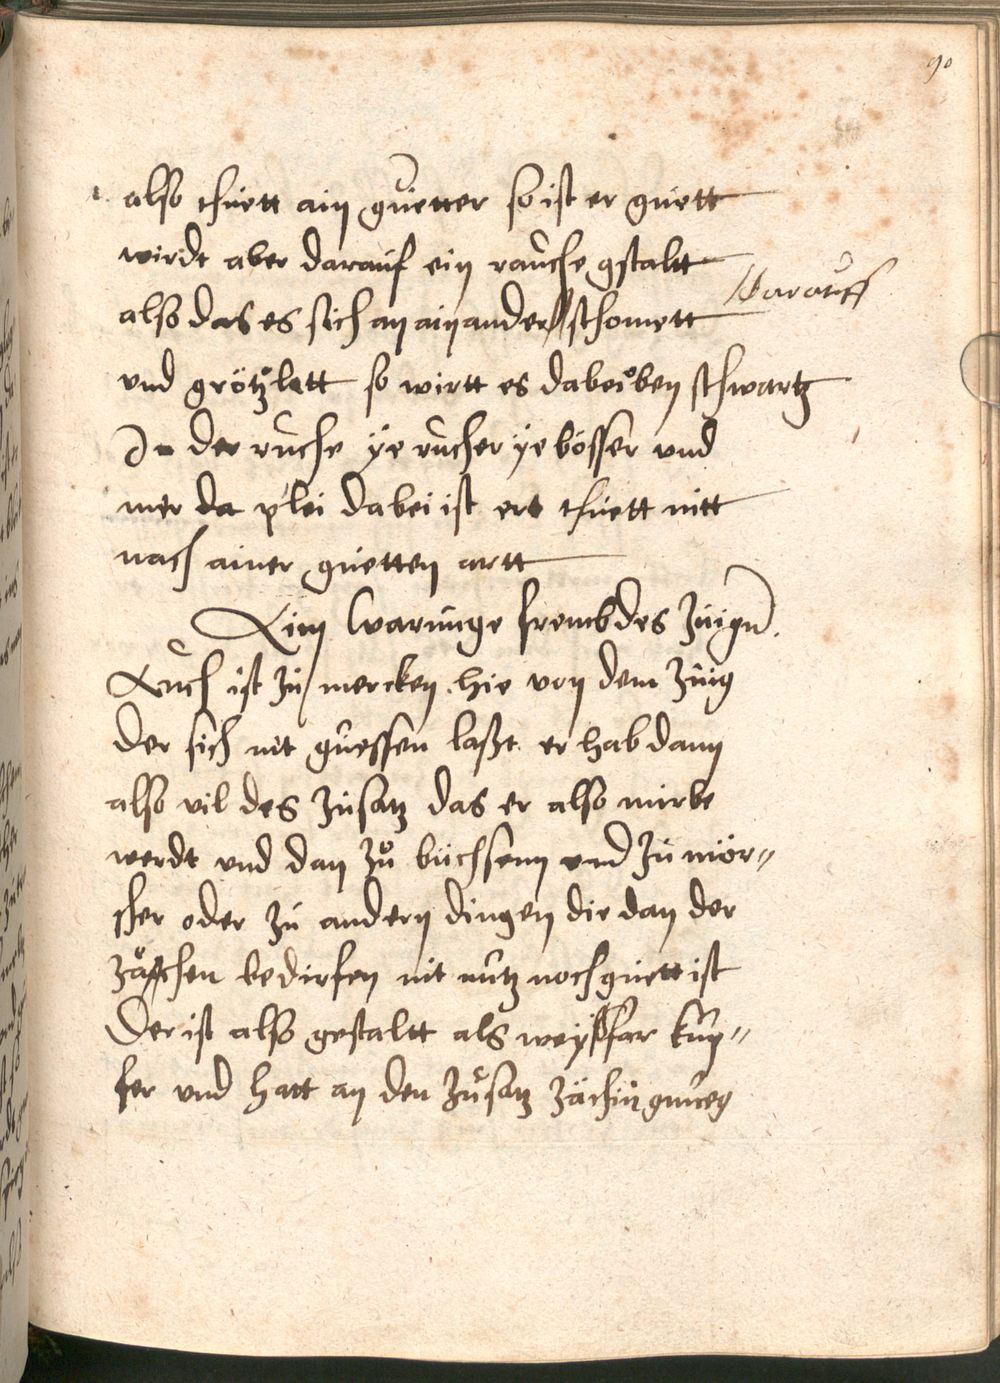 90
also thuett ain guetter so ist er guett
wirdt aber darauf ein rauche gstaltt
darauff
also das es sich an ainander schomett
vnd grötzlett so wirtt es dabei oben schwartz
In der ruche ye rucher ye bösser vnd
mer da plei dabei ist er thuett nitt
nach ainer guetten artt
Ein warnunge frembdes Zuigs
Auch ist zu mercken hie von dem Zuig
der sich nit guessen laßt er hab dann
also vil des zusatz das er also mirbe
werdt vnd dan zu büchsenn vnd zu mör-
sher oder zu andern dingen die dan der
zächen bedirfen nit nutz noch guett ist
Der ist also gestaltt als weysfar kup-
fer vnd hatt an den Zusatz zächin gnueg